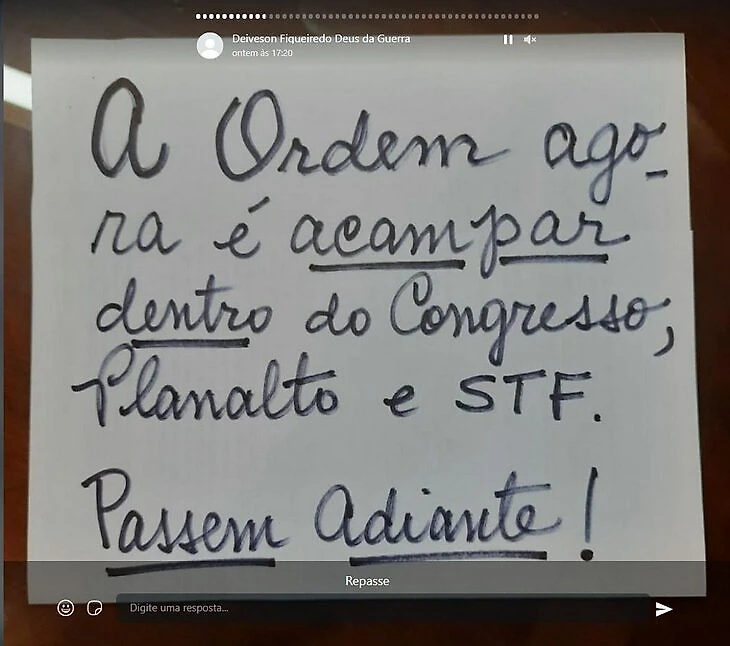 Deiveson Fiqueiredo Deus da Guerra
ontem às 17:20
A Ordem ago-
ra é acampar
dentro do Congresso,
Planalto e STF.
Passem Adiante!
Repasse
Digite uma resposta...